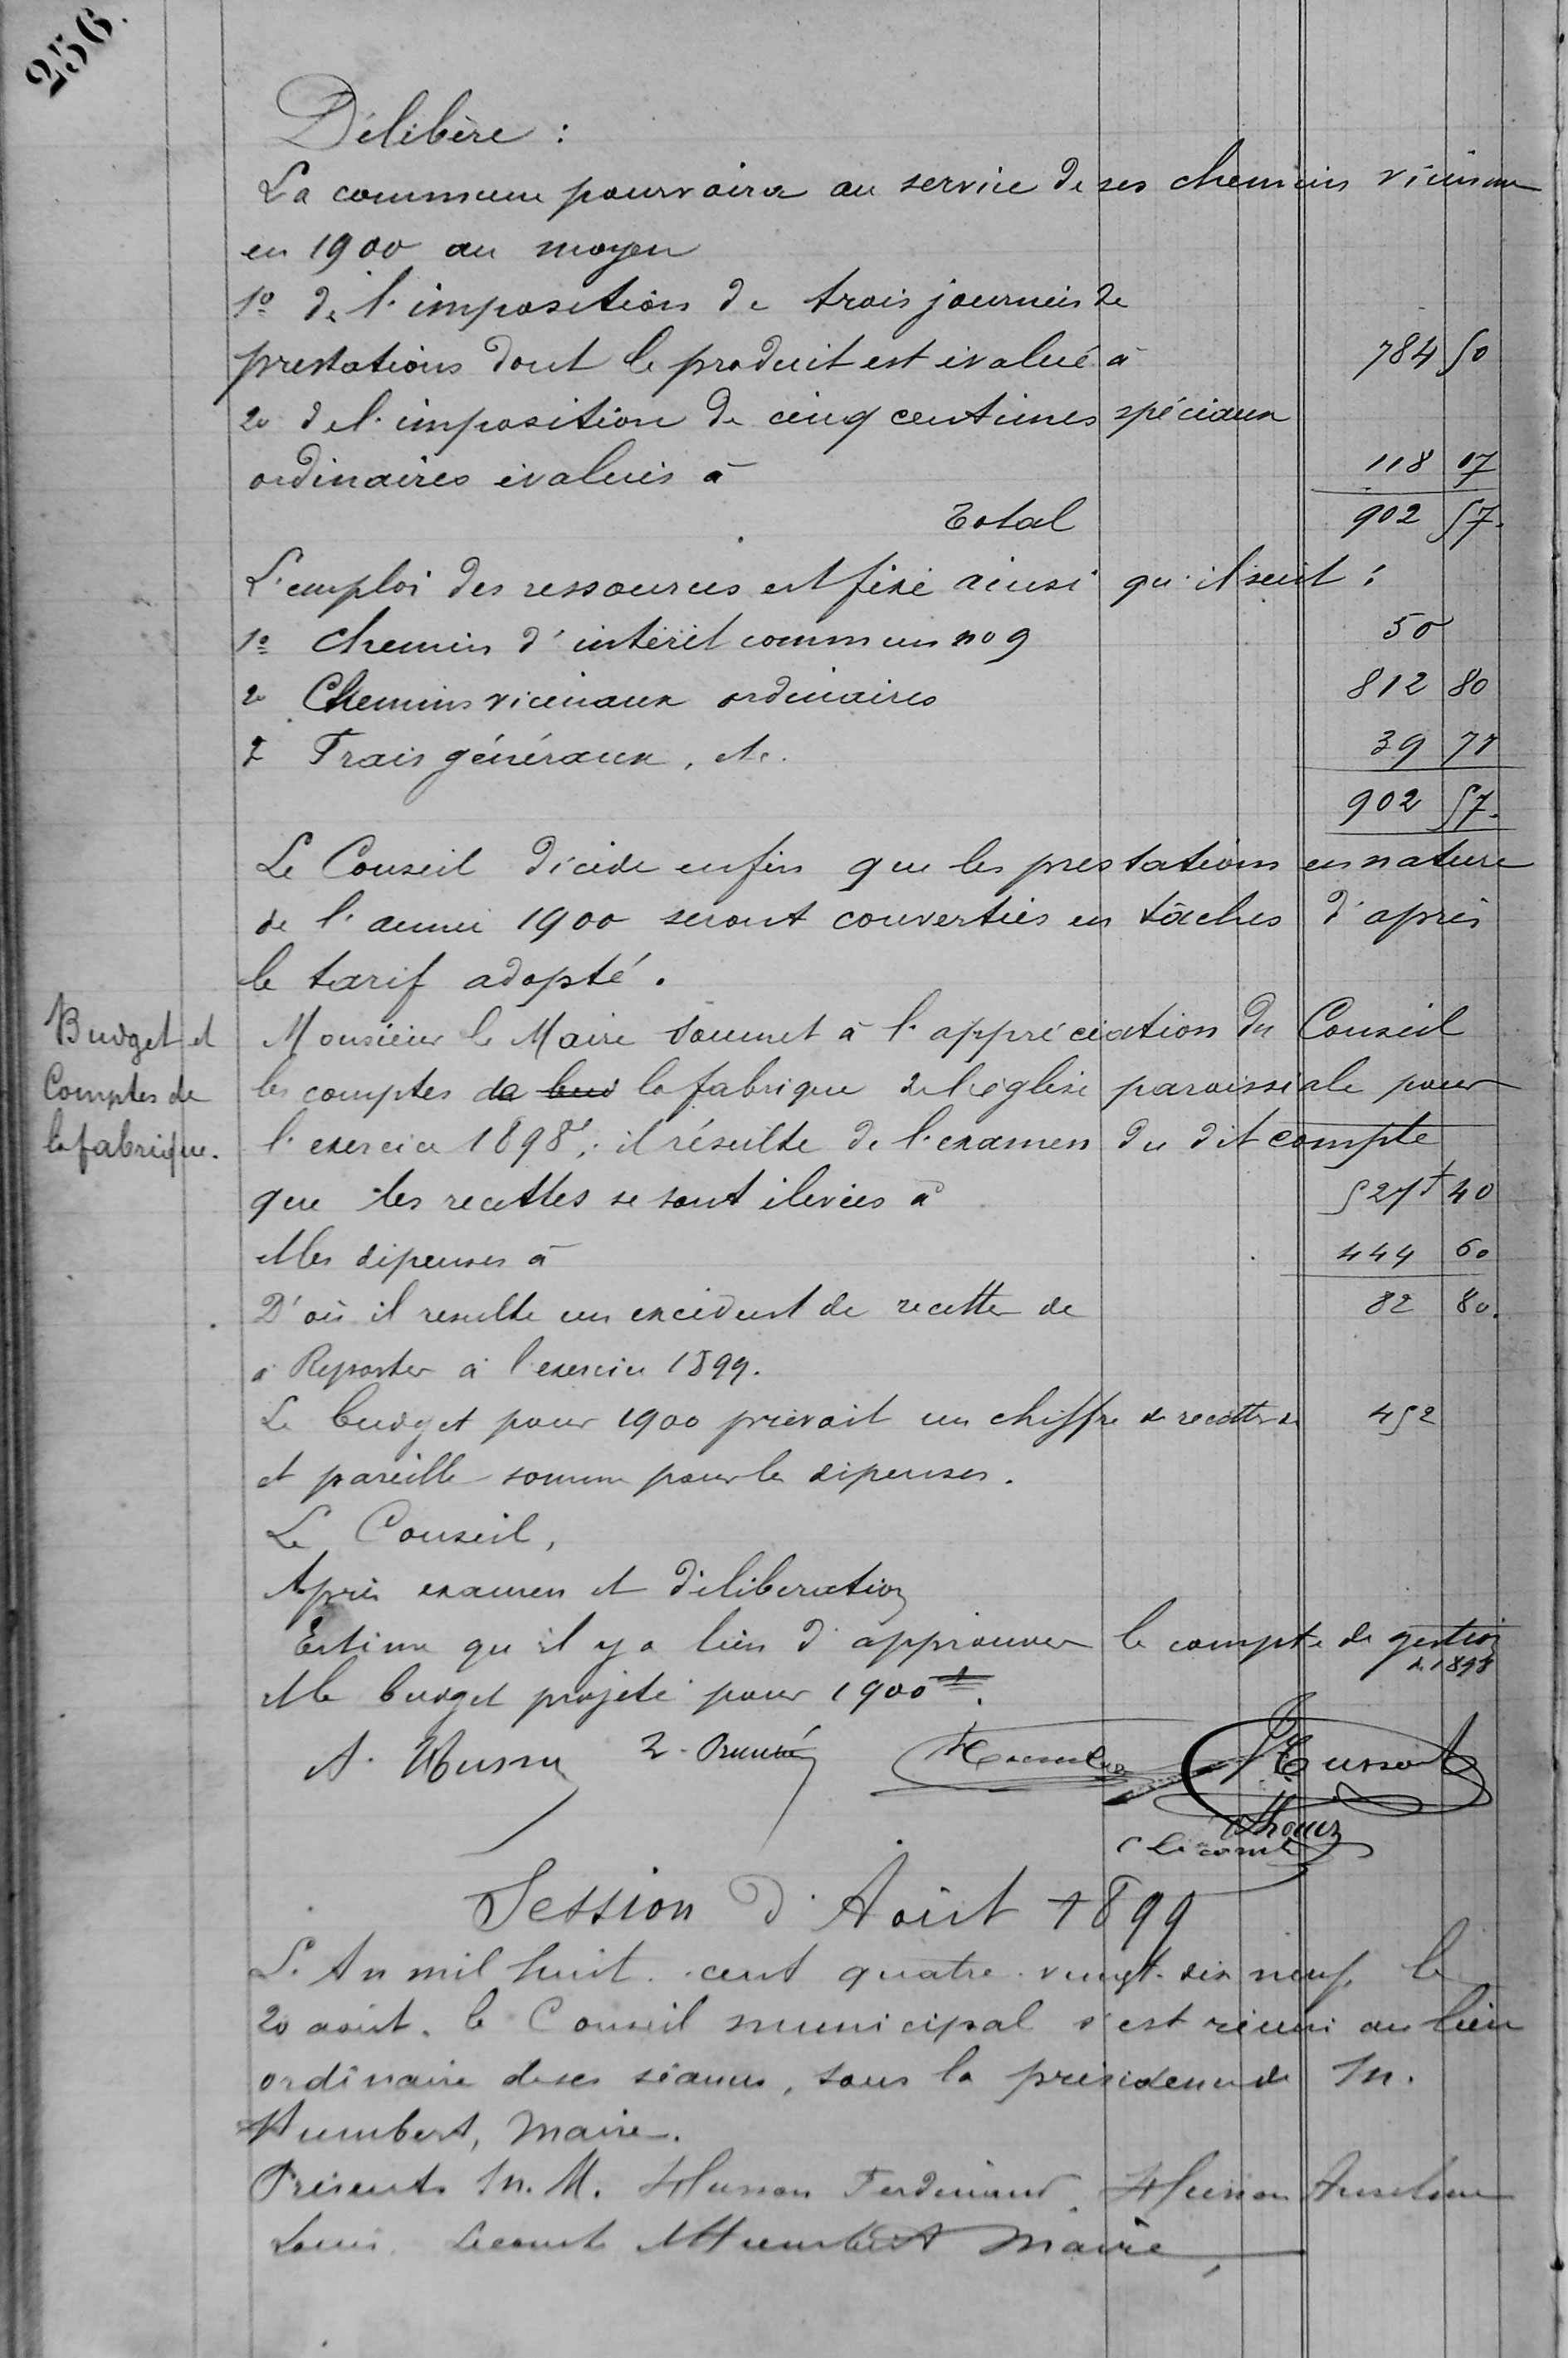 256.
Délibère :
La commune pourvoira au service de ses chemins vicinaux
en 1900 au moyen
1º de l'imposition de trois journées de
prestations dont le produit est évalué à 784 50
2º de l'imposition de cinq centimes spéciaux
ordinaires évalués à 118 07
Total 902 57.
L'emploi des ressources est fixé ainsi qu'il suit :
1º Chemin d'intérêt commun no 9 50
2º Chemins vicinaux ordinaires 812 80
3 Frais généraux, etc. 39 77
902 57.
Le Conseil décide enfin que les prestations en nature
de l'année 1900 seront converties en tâches d'après
le tarif adopté.
Budget et
Comptes de
la fabrique.
Monsieur le Maire soumet à l'appréciation du Conseil
les comptes de la fabrique de l'église paroissiale pour
l'exercice 1898, il résulte de l'examen du dit compte
que les recettes se sont élevées à 527f 40
et les dépenses à 444 60
D'où il resulte un excédent de recette de 82 80.
à Reporter à l'exercice 1899.
Le budget pour 1900 prévoit un chiffre de recettes de 452
et pareille somme pour les dépenses.
Le Conseil,
Après examen et déliberation
Estime qu'il y a lieu d'approuver le compte de gestion
de 1898
et le budget projeté pour 1900.
A. Husson
Husson
Lecomte
Session d'Août 1899
L'An mil huit cent quatre-vingt-dix neuf, le
20 août, le Conseil municipal s'est réuni au lieu
ordinaire de ses séances, sous la présidence de M.
Humbert, Maire.
Présents M. M. Husson Ferdinand, Husson Anselme
Louis, Lecomte et Humbert Maire,